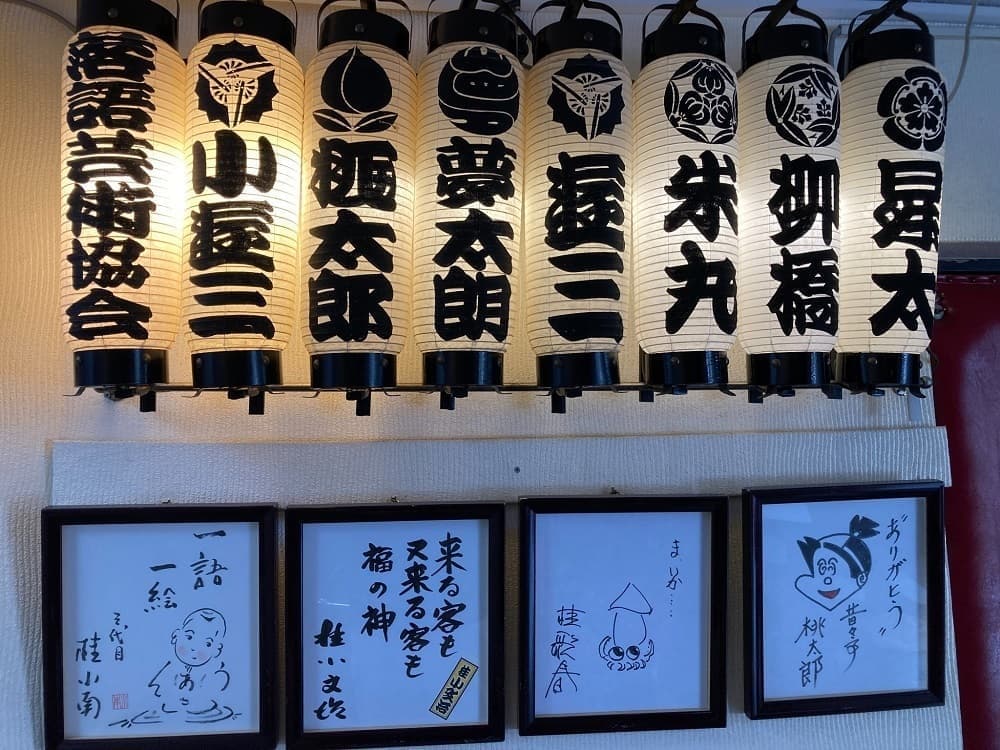 昇太
柳橋
米丸
遊三
夢太朗
桃太郎
小遊三
落語芸術協会
"ありガとう"
昔々亭
桃太郎
ま、いか…..
桂歌春
来る客も
又来る客も
福の神
桂小文治
一語
一絵
三代目
桂小南